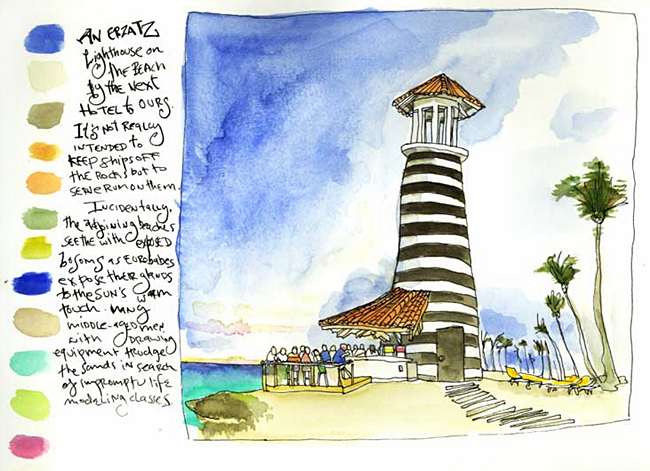 AN ERZATZ
Lighthouse on
the BEACH
by the Next
HOTEL to OURS.
It's NOT REALLY
INTENDED to
KEEP ships OFF
the ROCKS but to
SERVE RUM ON them.
INCIDENTALLY,
the adjoining beaches
SEETHE with EXPOSED
bosoms as EUROBABES
EXPOSE their glands
to the SUN'S WARM
touch. MANY
MIDDLE-AGED MEN
with DRAWING
EQUIPMENT trudge
the SANDS IN SEARCH
of IMPROMPTU life
modeling classes.